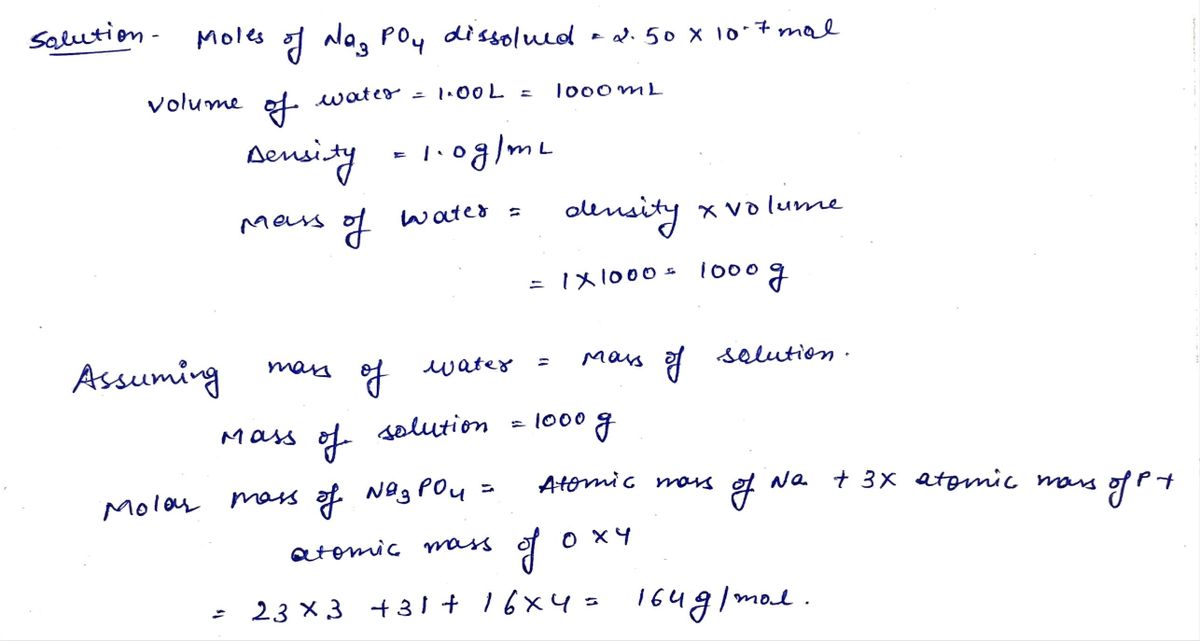 Solution - Moles of Na₃PO₄ dissolved = 2.50 × 10⁻⁷ mol
volume of water = 1.00L = 1000mL
Density = 1.0g/mL
Mass of water = density × volume
= 1×1000 = 1000g
Assuming mass of water = Mass of solution.
Mass of solution = 1000g
Molar mass of Na₃PO₄ = Atomic mass of Na + 3× atomic mass of P +
atomic mass of O ×4
= 23×3 +31+ 16×4 = 164g/mol.